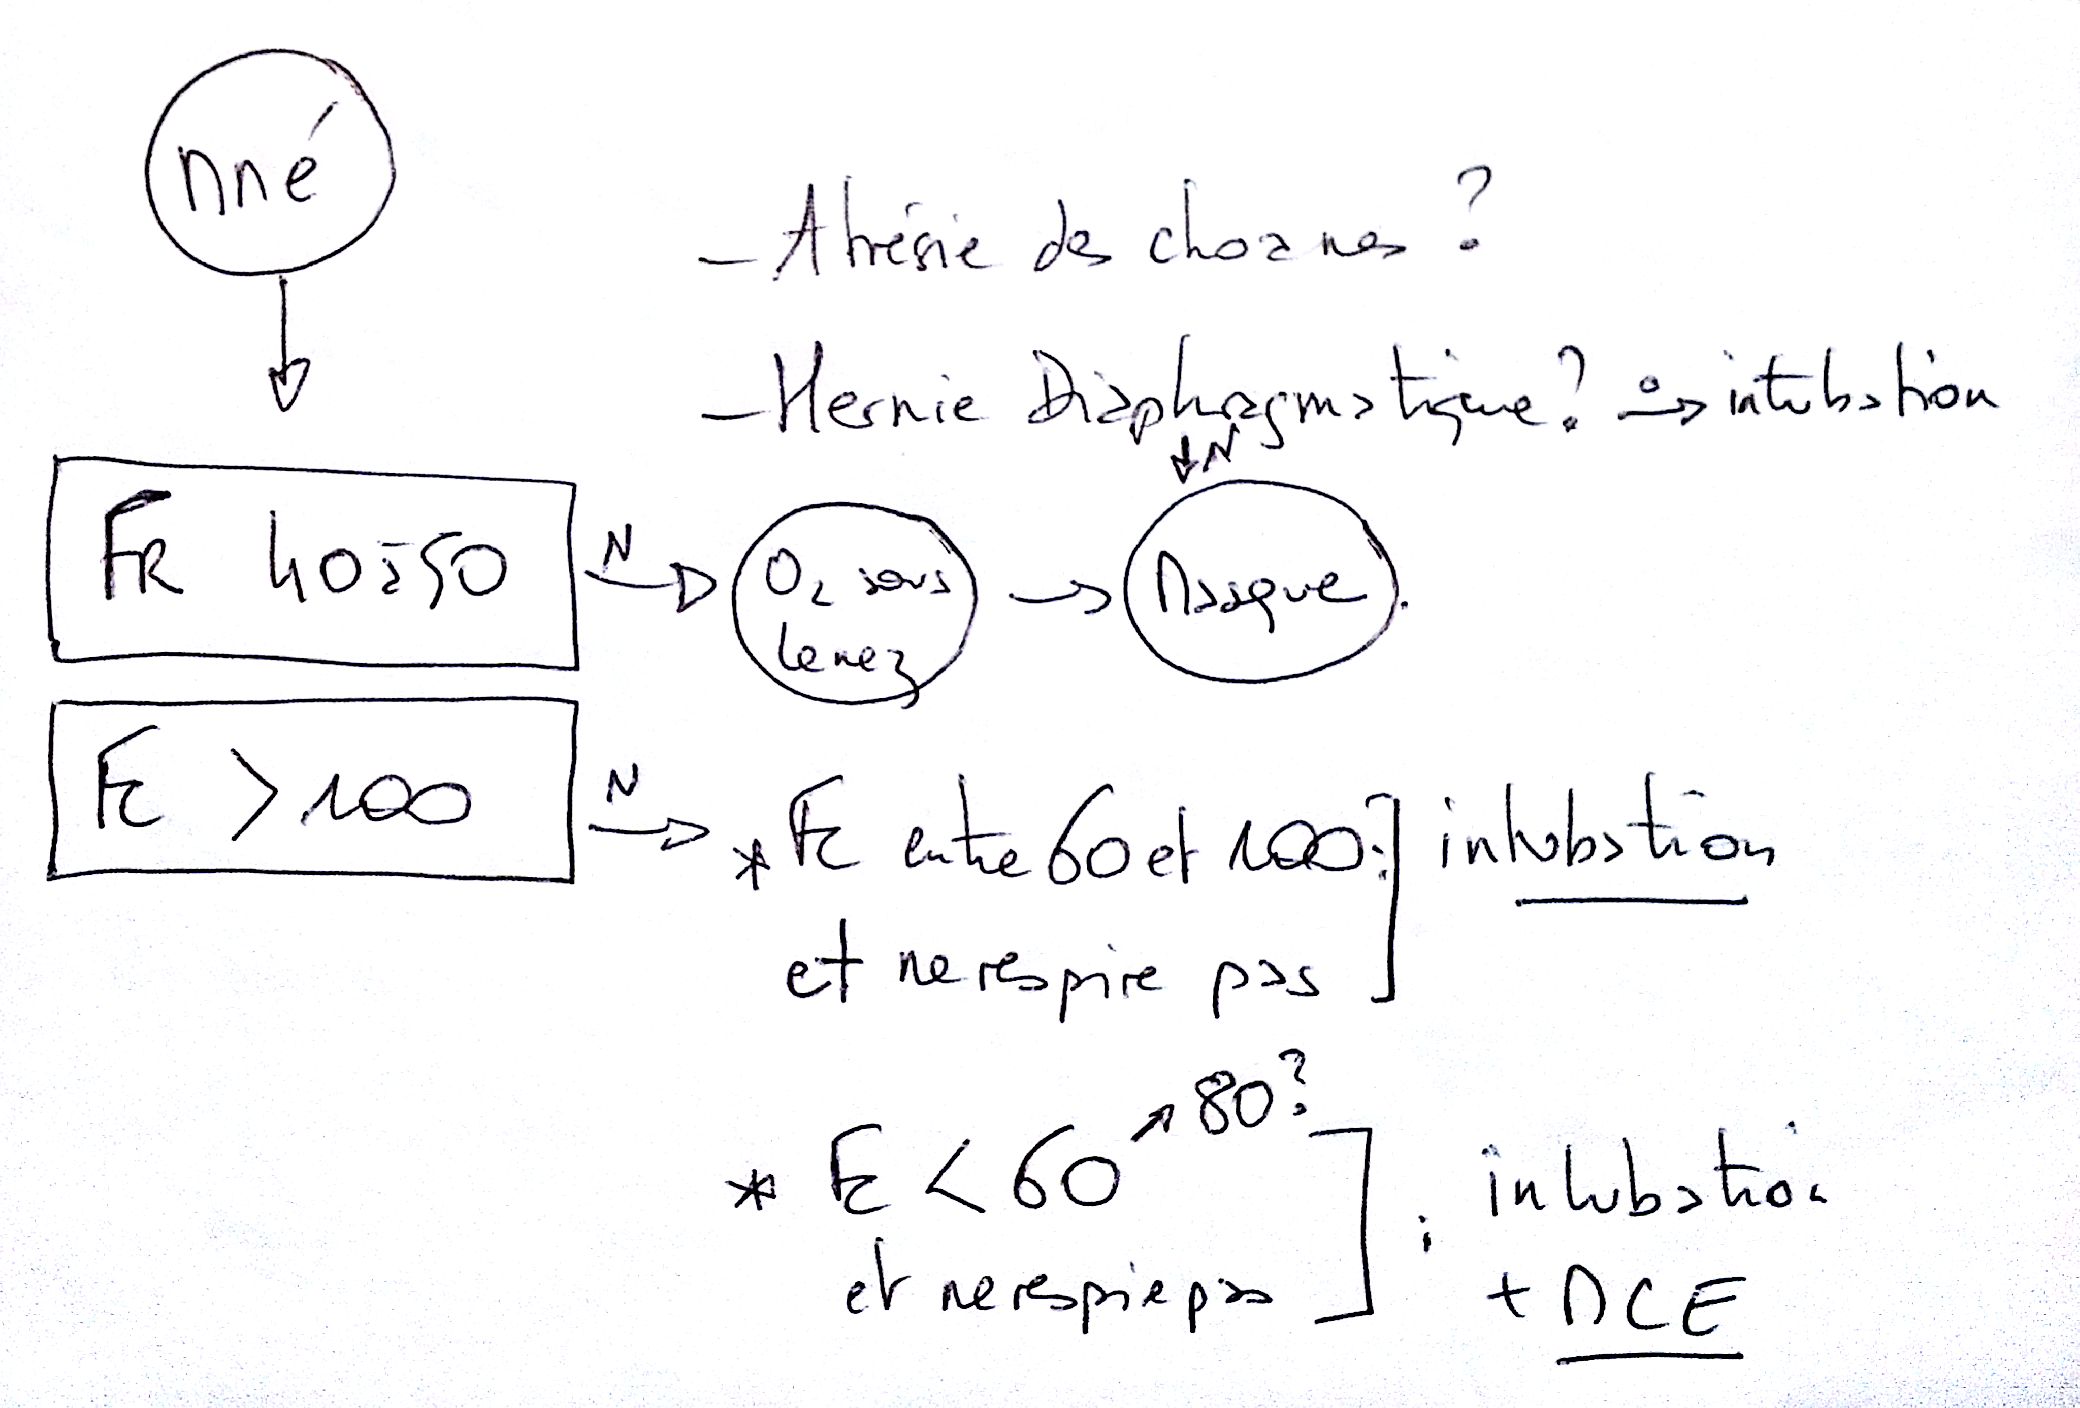 nné
- Atrésie des choanes ?
- Hernie Diaphragmatique ? o→ intubation
↓ N
FR 40 à 50
N
O2 sous
le nez
→
Masque.
FC > 100
N
* FC entre 60 et 100 : ] intubation
et ne respire pas
* FC < 60 ↗ 80 ?
et ne respire pas ] : intubation
+ MCE